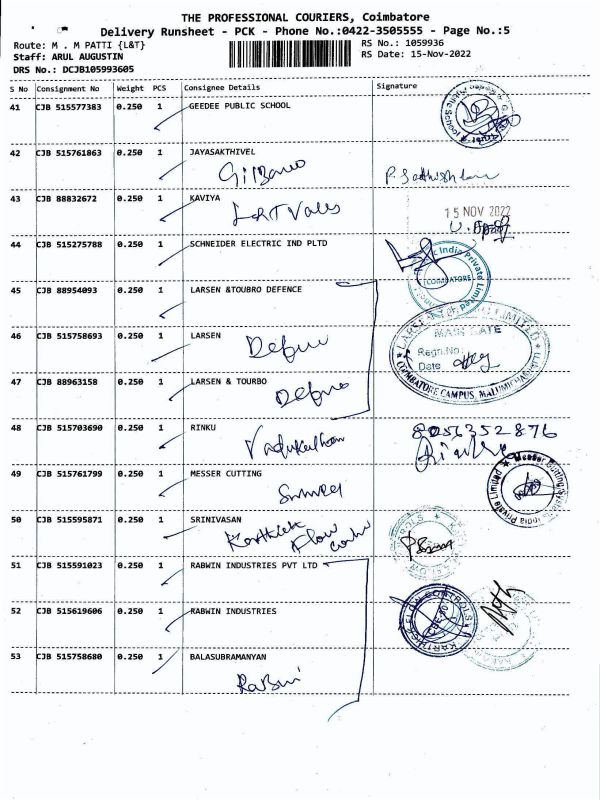 THE PROFESSIONAL COURIERS, Coimbatore
Delivery Runsheet - PCK - Phone No.:0422-3505555 - Page No.:5
Route: M . M PATTI {L&T}
RS No.: 1059936
Staff: ARUL AUGUSTIN
RS Date: 15-Nov-2022
DRS No.: DCJB105993605
S No Consignment No Weight PCS Consignee Details Signature
41 CJB 515577383 0.250 1 GEEDEE PUBLIC SCHOOL
42 CJB 515761863 0.250 1 JAYASAKTHIVEL
43 CJB 88832672 0.250 1 KAVIYA
L&T Valves
15 NOV 2022
44 CJB 515275788 0.250 1 SCHNEIDER ELECTRIC IND PLTD
India Private Limited
COIMBATORE
45 CJB 88954093 0.250 1 LARSEN &TOUBRO DEFENCE
46 CJB 515758693 0.250 1 LARSEN
MAIN GATE
Regn.No:
Date
COIMBATORE CAMPUS, MALUMICHAMPATTI
47 CJB 88963158 0.250 1 LARSEN & TOURBO
48 CJB 515703690 0.250 1 RINKU
8056352876
49 CJB 515761799 0.250 1 MESSER CUTTING
Messer Cutting
India Private Limited
50 CJB 515595871 0.250 1 SRINIVASAN
Karthick Flow
51 CJB 515591023 0.250 1 RABWIN INDUSTRIES PVT LTD
52 CJB 515619606 0.250 1 RABWIN INDUSTRIES
53 CJB 515758680 0.250 1 BALASUBRAMANYAN